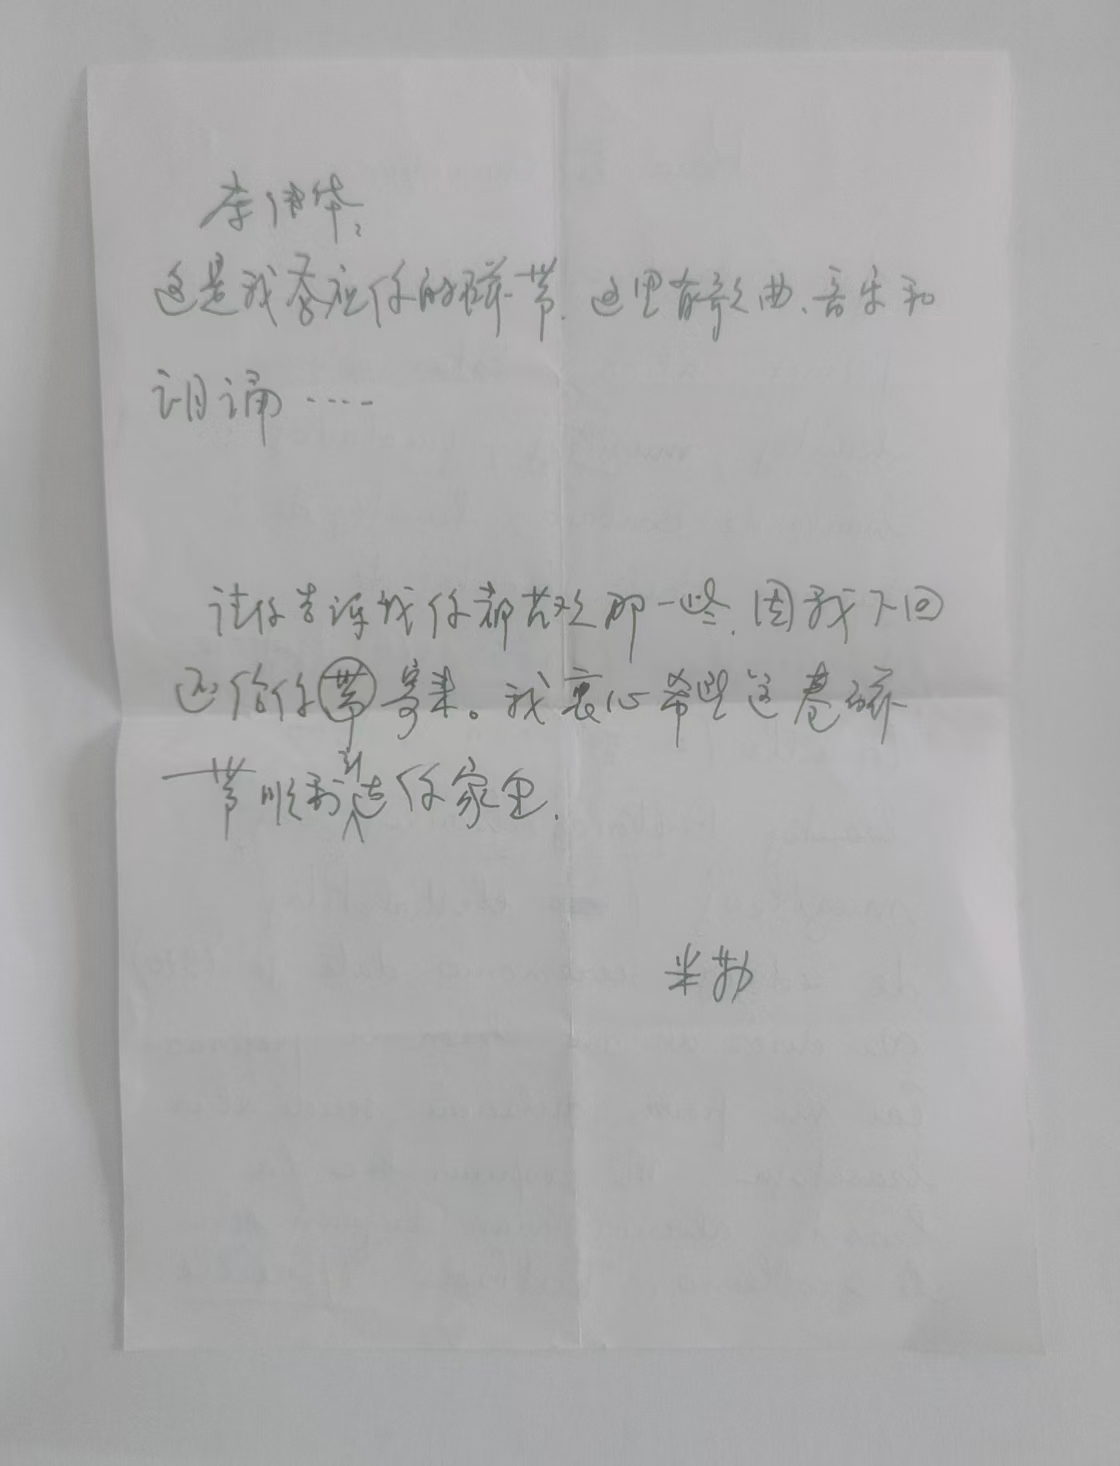 李伟华：
这是我答应你的磁带. 这里有歌曲、音乐和
朗诵·····
请你告诉我你都喜欢那一些. 因我下回
还给你带寄来。我衷心希望这卷磁
带顺利到达你家里.
米勒